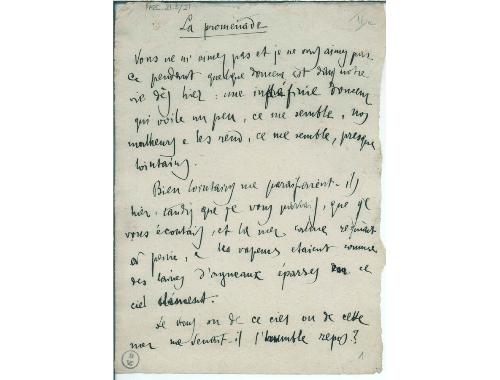 La promenade
Vous ne m'aimez pas et je ne vous aimez pas.
Ce pendant quelque douceur est dans notre
vie dès hier : une infinie douceur
qui voile un peu, ce me semble, nos
malheurs & les rend, ce me semble, presque
lointains.
Bien lointains me paraissent-ils
hier, tandis que je vous parlais, que je
vous écoutais, et la mer calme
et les vapeurs etaient comme
des laines d'agneaux éparses en ce
ciel clément.
de vous ou de ce ciel ou de cette
mer me venait-il l'humble repos?
1